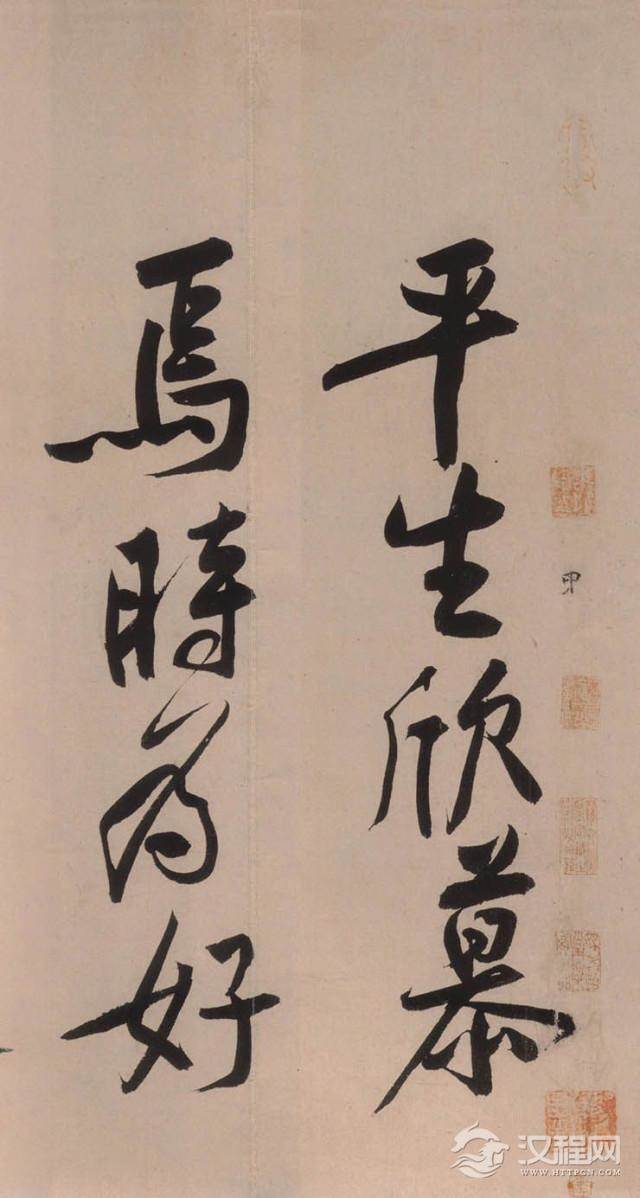 甲
平生欣慕
焉時為好
汉程网
WWW.HTTPCN.COM